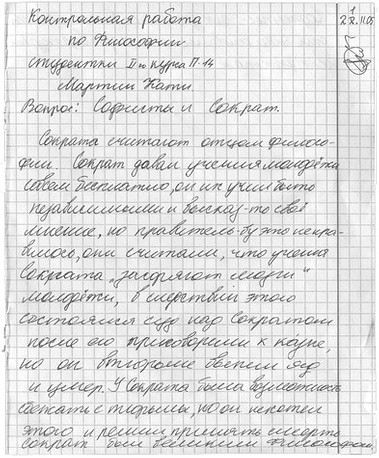 Контрольная работа
по Философии
студентки II го курса П-14
Мартин Кати
Вопрос: Софисты и Сократ.
1
22.11.05
Сократа считают отцом филосо-
фии. Сократ давал учения молодёжи
совсем бесплатно, он их учил быть
независимыми и высказ-ть своё
мнение, но правитель-ву это не нра-
вилось, они считали, что учения
Сократа „засоряют мозги"
молодёжи, в следствии этого
состоялся суд над Сократом
после его приговорили к казне,
но он выпил яд
и умер. У Сократа была возможность
сбежать с тюрьмы, но он не хотел
этого и решил принять смерть
Сократ был великим философом,